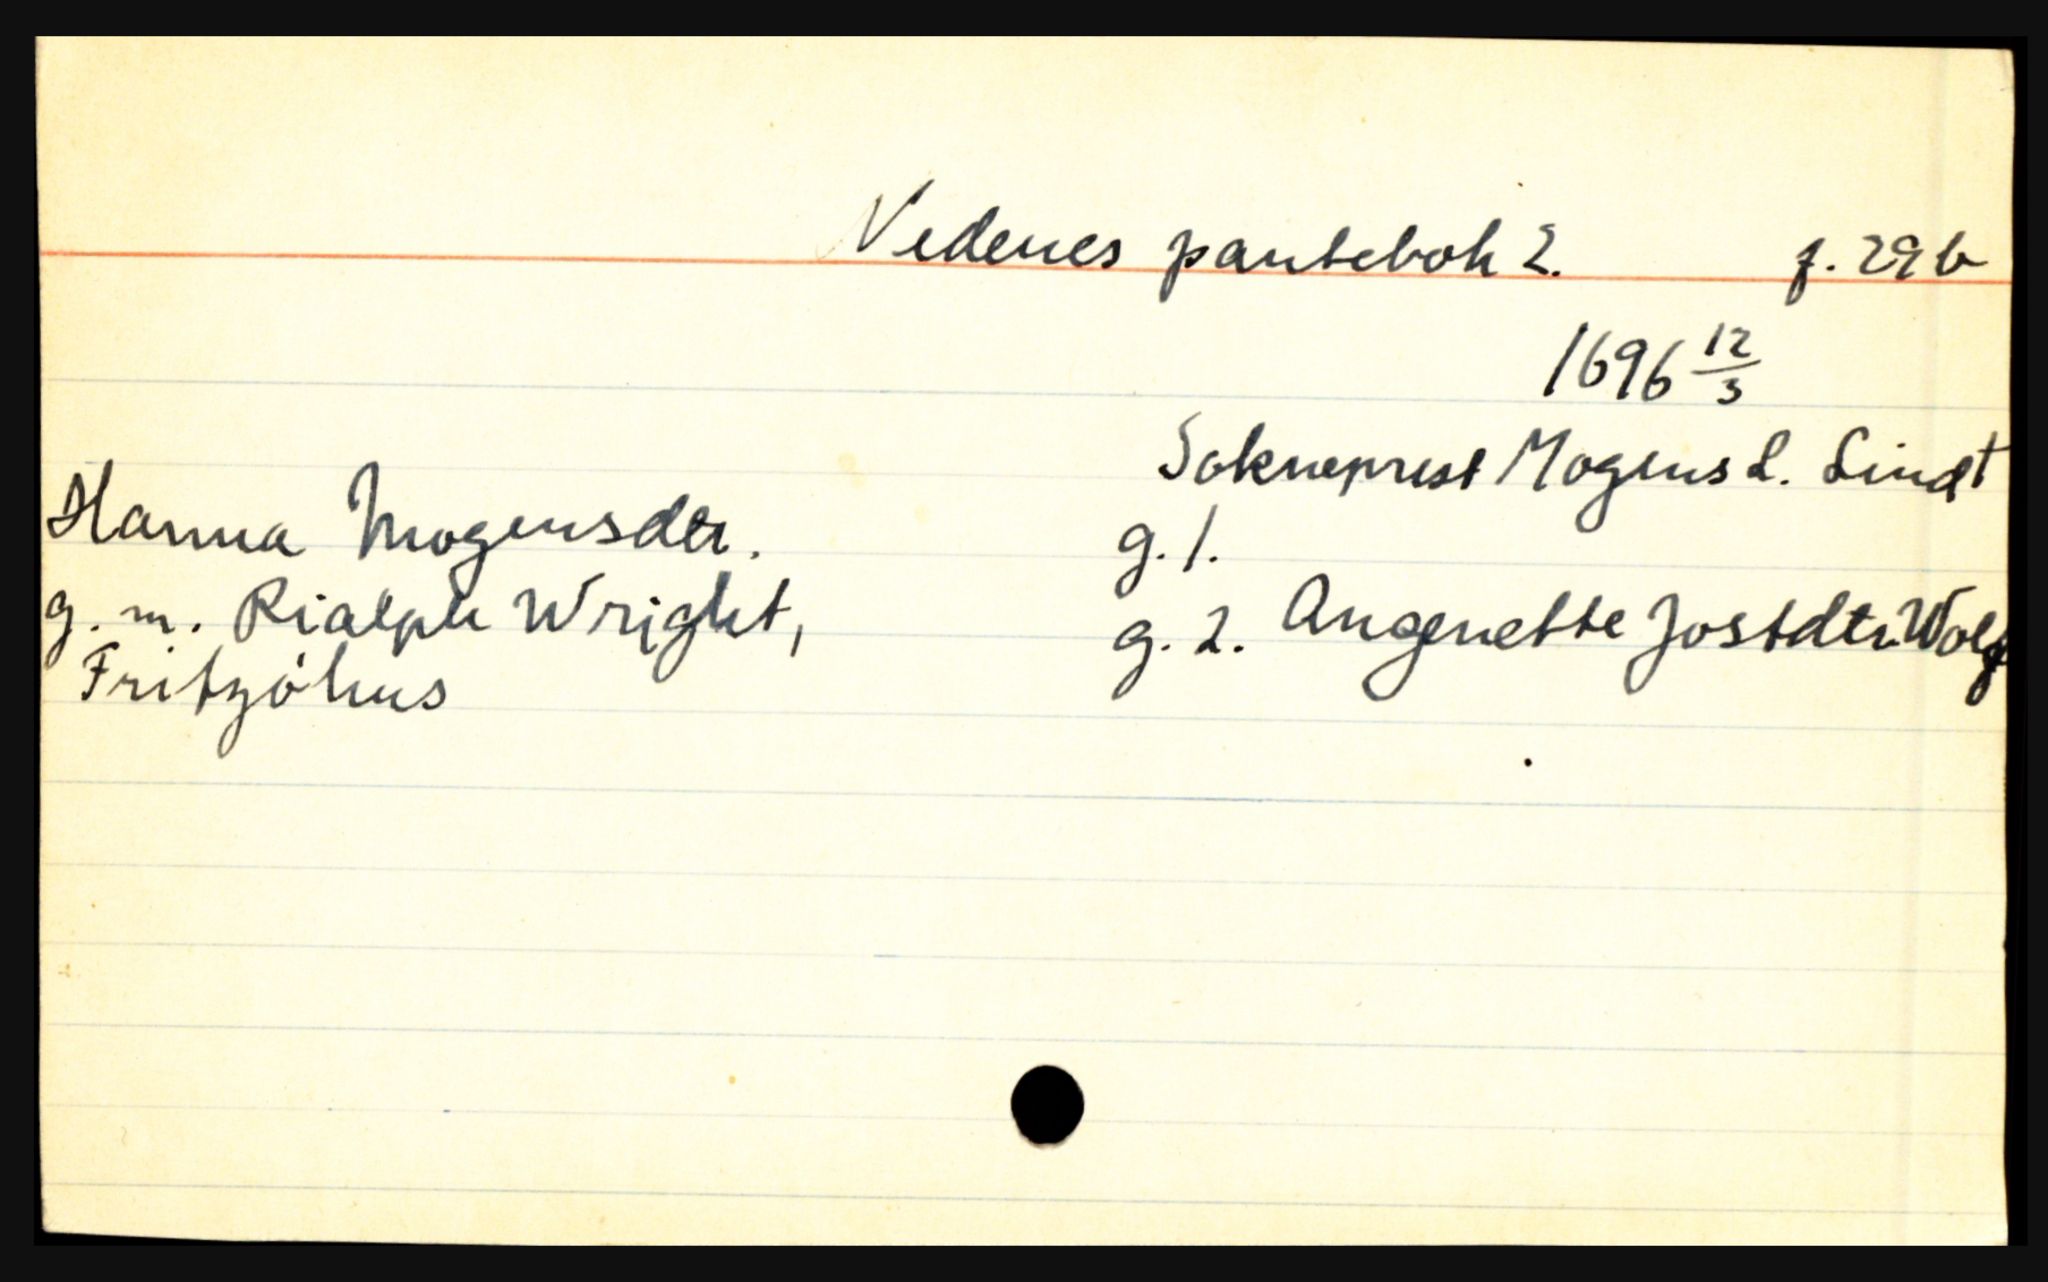 Nedenes pantebok 2. f. 29 b
1696 12/3
Sokneprest Mogens L. Lindt
Hanna Mogensdtr.
g. 1.
g. m. Rialph Wright,
g. 2. Angenette Jostdtr. Wolf
Fritzöhus